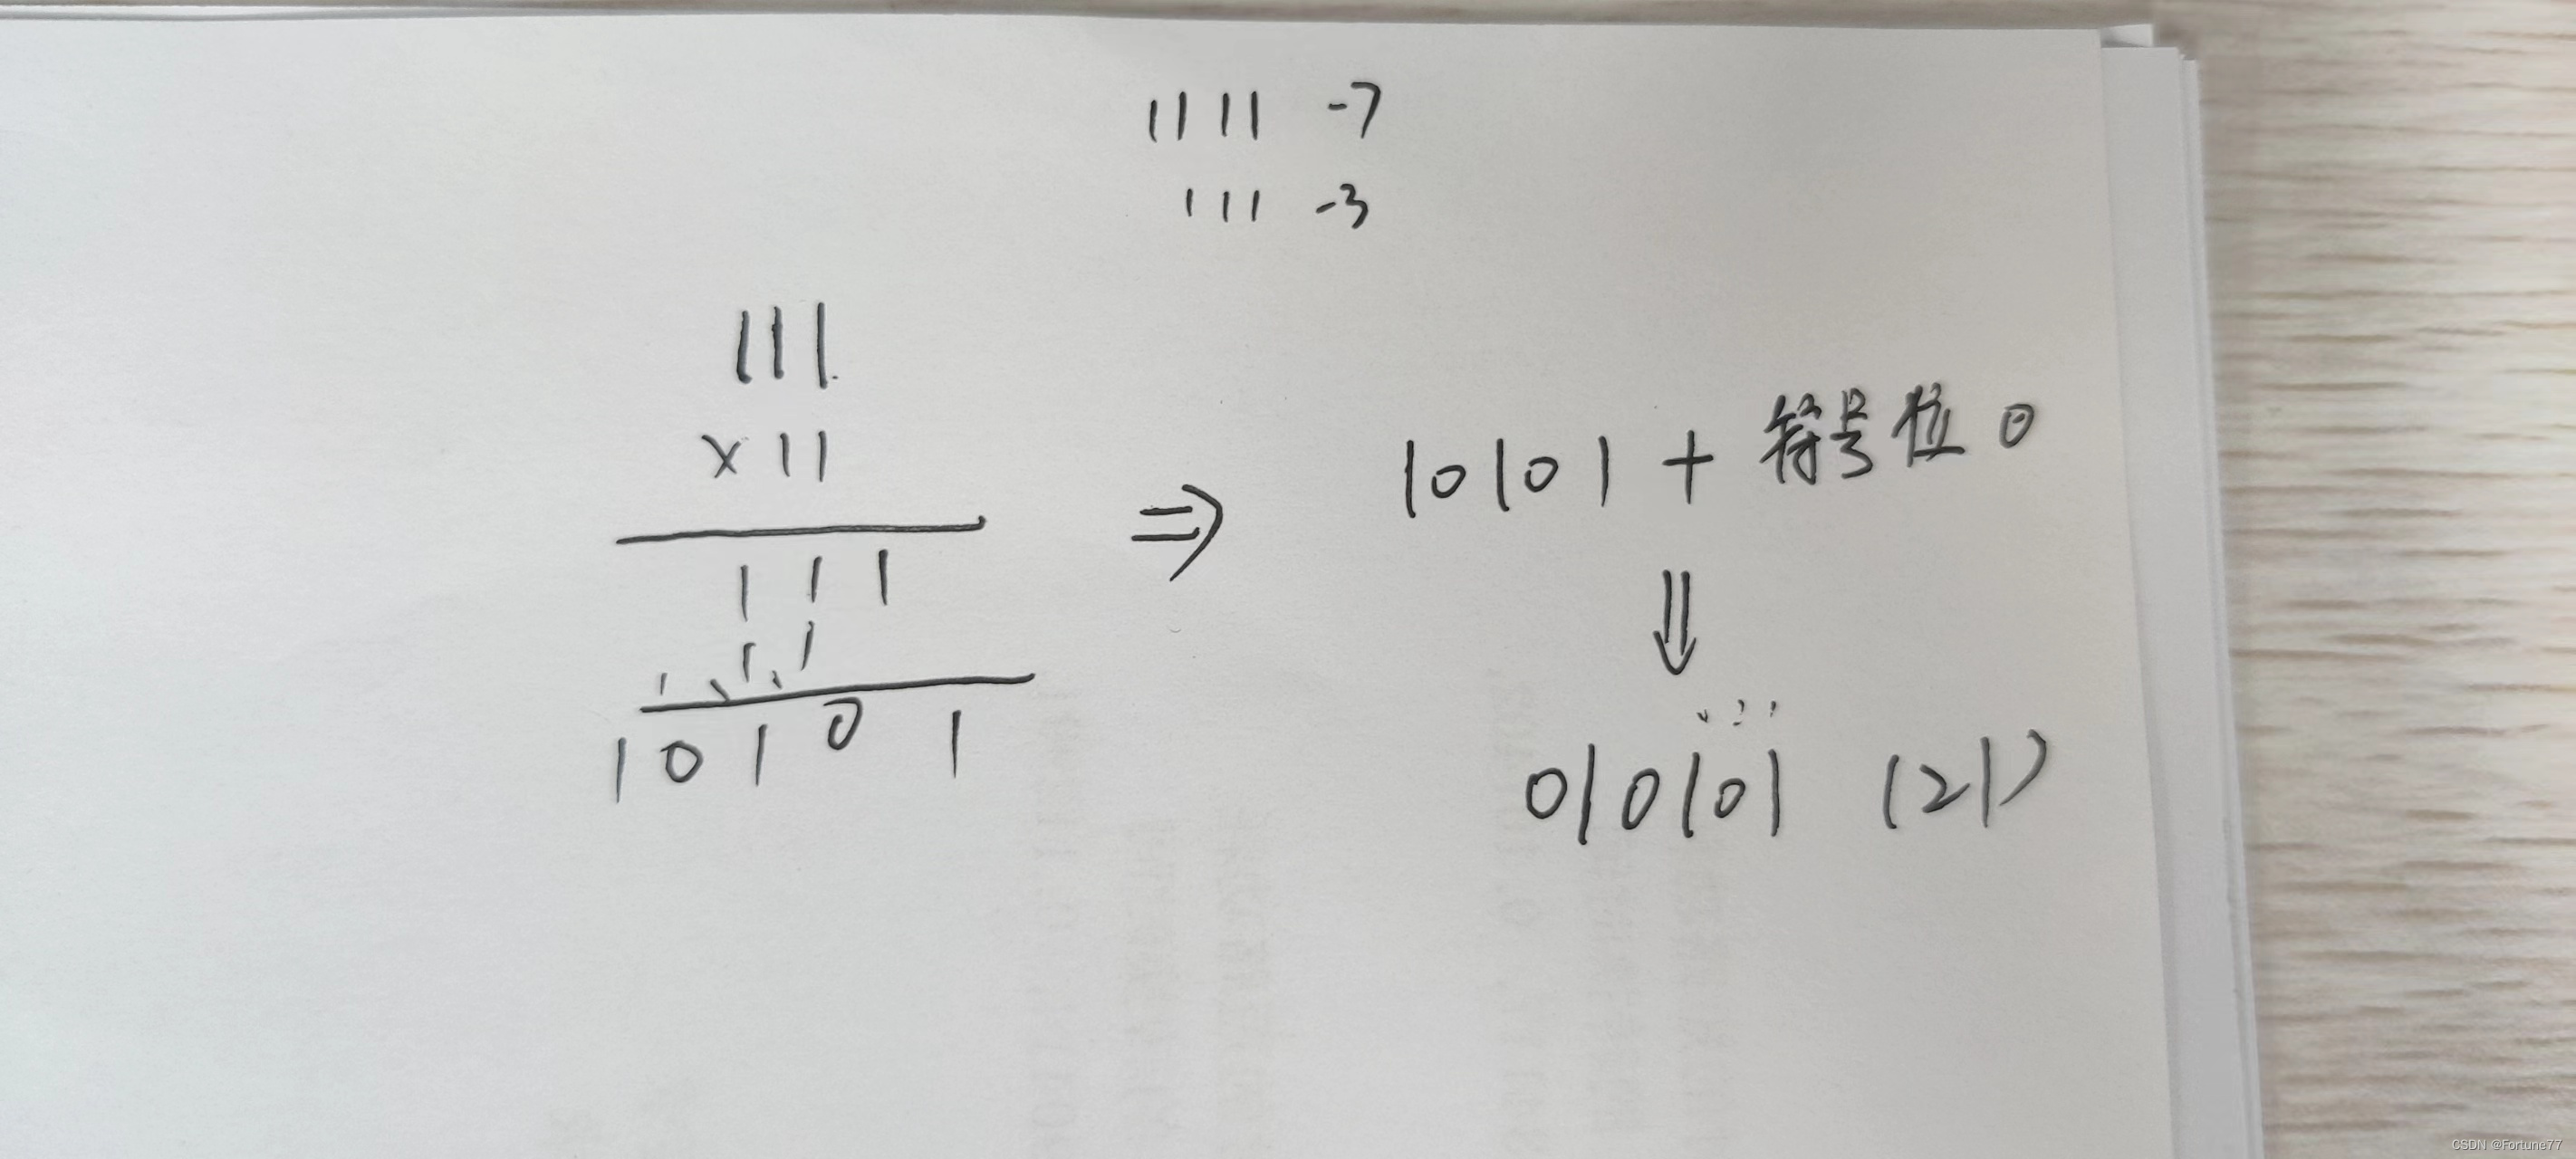 1111 -7
111 -3
111
×11
111
111
10101
⇒
10101 + 符号位 0
⇓
010101 (21)
CSDN @Fortune77